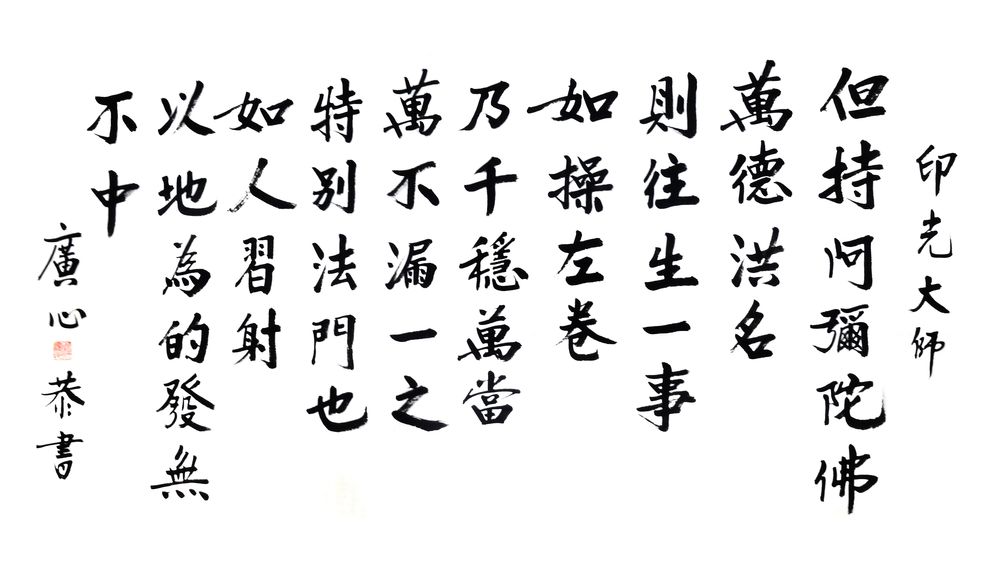 印光大師
但持阿彌陀佛
萬德洪名
則往生一事
如操左卷
乃千穩萬當
萬不漏一之
特别法門也
如人習射
以地為的發無
不中
廣心
恭書